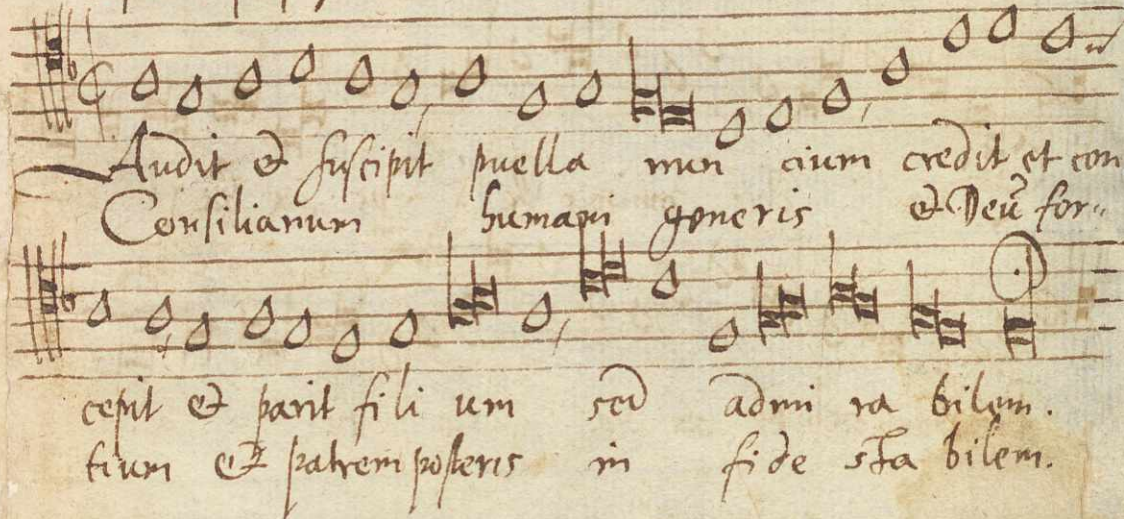 Audit & suscipit puella nun cium credit et con
Consiliarium humani generis & Deū for=
cepit & parit fili um sed admi ra bilem.
tium & patrem posteris in fide sta bilem.